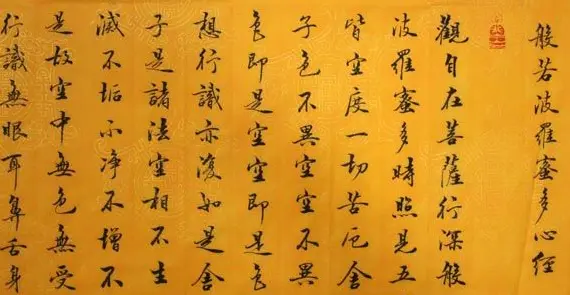 般若波羅蜜多心經
觀自在菩薩行深般
波羅蜜多時照見五
皆空度一切苦厄舍
子色不異空空不異
色即是空空即是色
想行識亦復如是舍
子是諸法空相不生
滅不垢不净不增不
是故空中無色無受
行識無眼耳鼻舌身